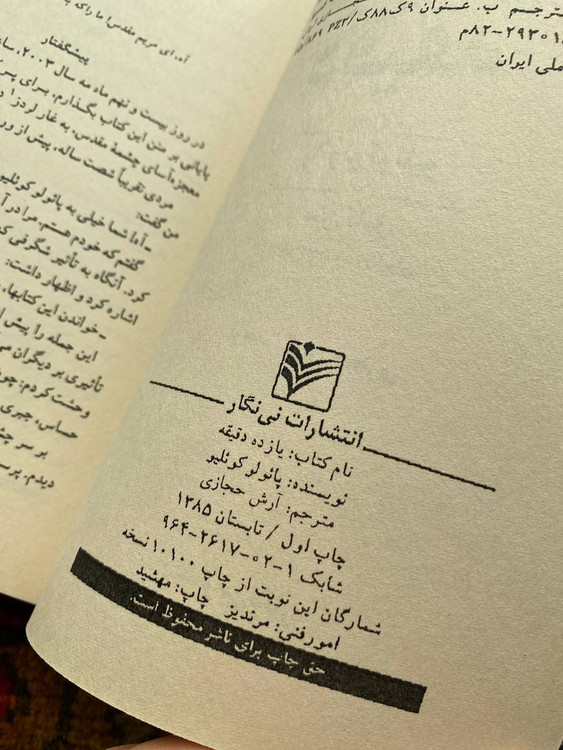 مترجم ب. عنوان ۹ک۸۸ک/PZ۳
۸۲-۲۹۳۰۱م
ملی ایران
انتشارات نی‌نگار
نام کتاب: یازده دقیقه
نویسنده: پائولو کوئلیو
مترجم: آرش حجازی
چاپ اول / تابستان ۱۳۸۵
شابک ۱-۰۲-۲۶۱۷-۹۶۴
شمارگان این نوبت از چاپ ۱۰۱۰۰ نسخه
امور فنی: مرندیز چاپ: مهشید
حق چاپ برای ناشر محفوظ است.
آه، ای مریم مقدس! ما را که
پیشگفتار
در روز بیست و نهم ماه مه سال ۲۰۰۳،
پایانی بر متن این کتاب بگذارم، برای
معجزه‌آسای چشمهٔ مقدس، به غار لورد۱
مردی تقریباً شصت ساله، پیش از
من گفت:
ـ آیا شما خیلی به پائولو کوئلیو
گفتم که خودم هستم. مرا در آ
کرد. آنگاه به تأثیر شگرفی که
اشاره کرد و اظهار داشت:
ـ خواندن این کتابها،
این جمله را پیش از
تأثیری بر دیگران می
وحشت کردم: چون
حساس، جبری
بر سر
دیدم.